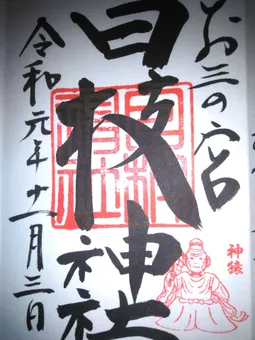 お三の宮
日枝神社
令和元年十一月三日
神猿